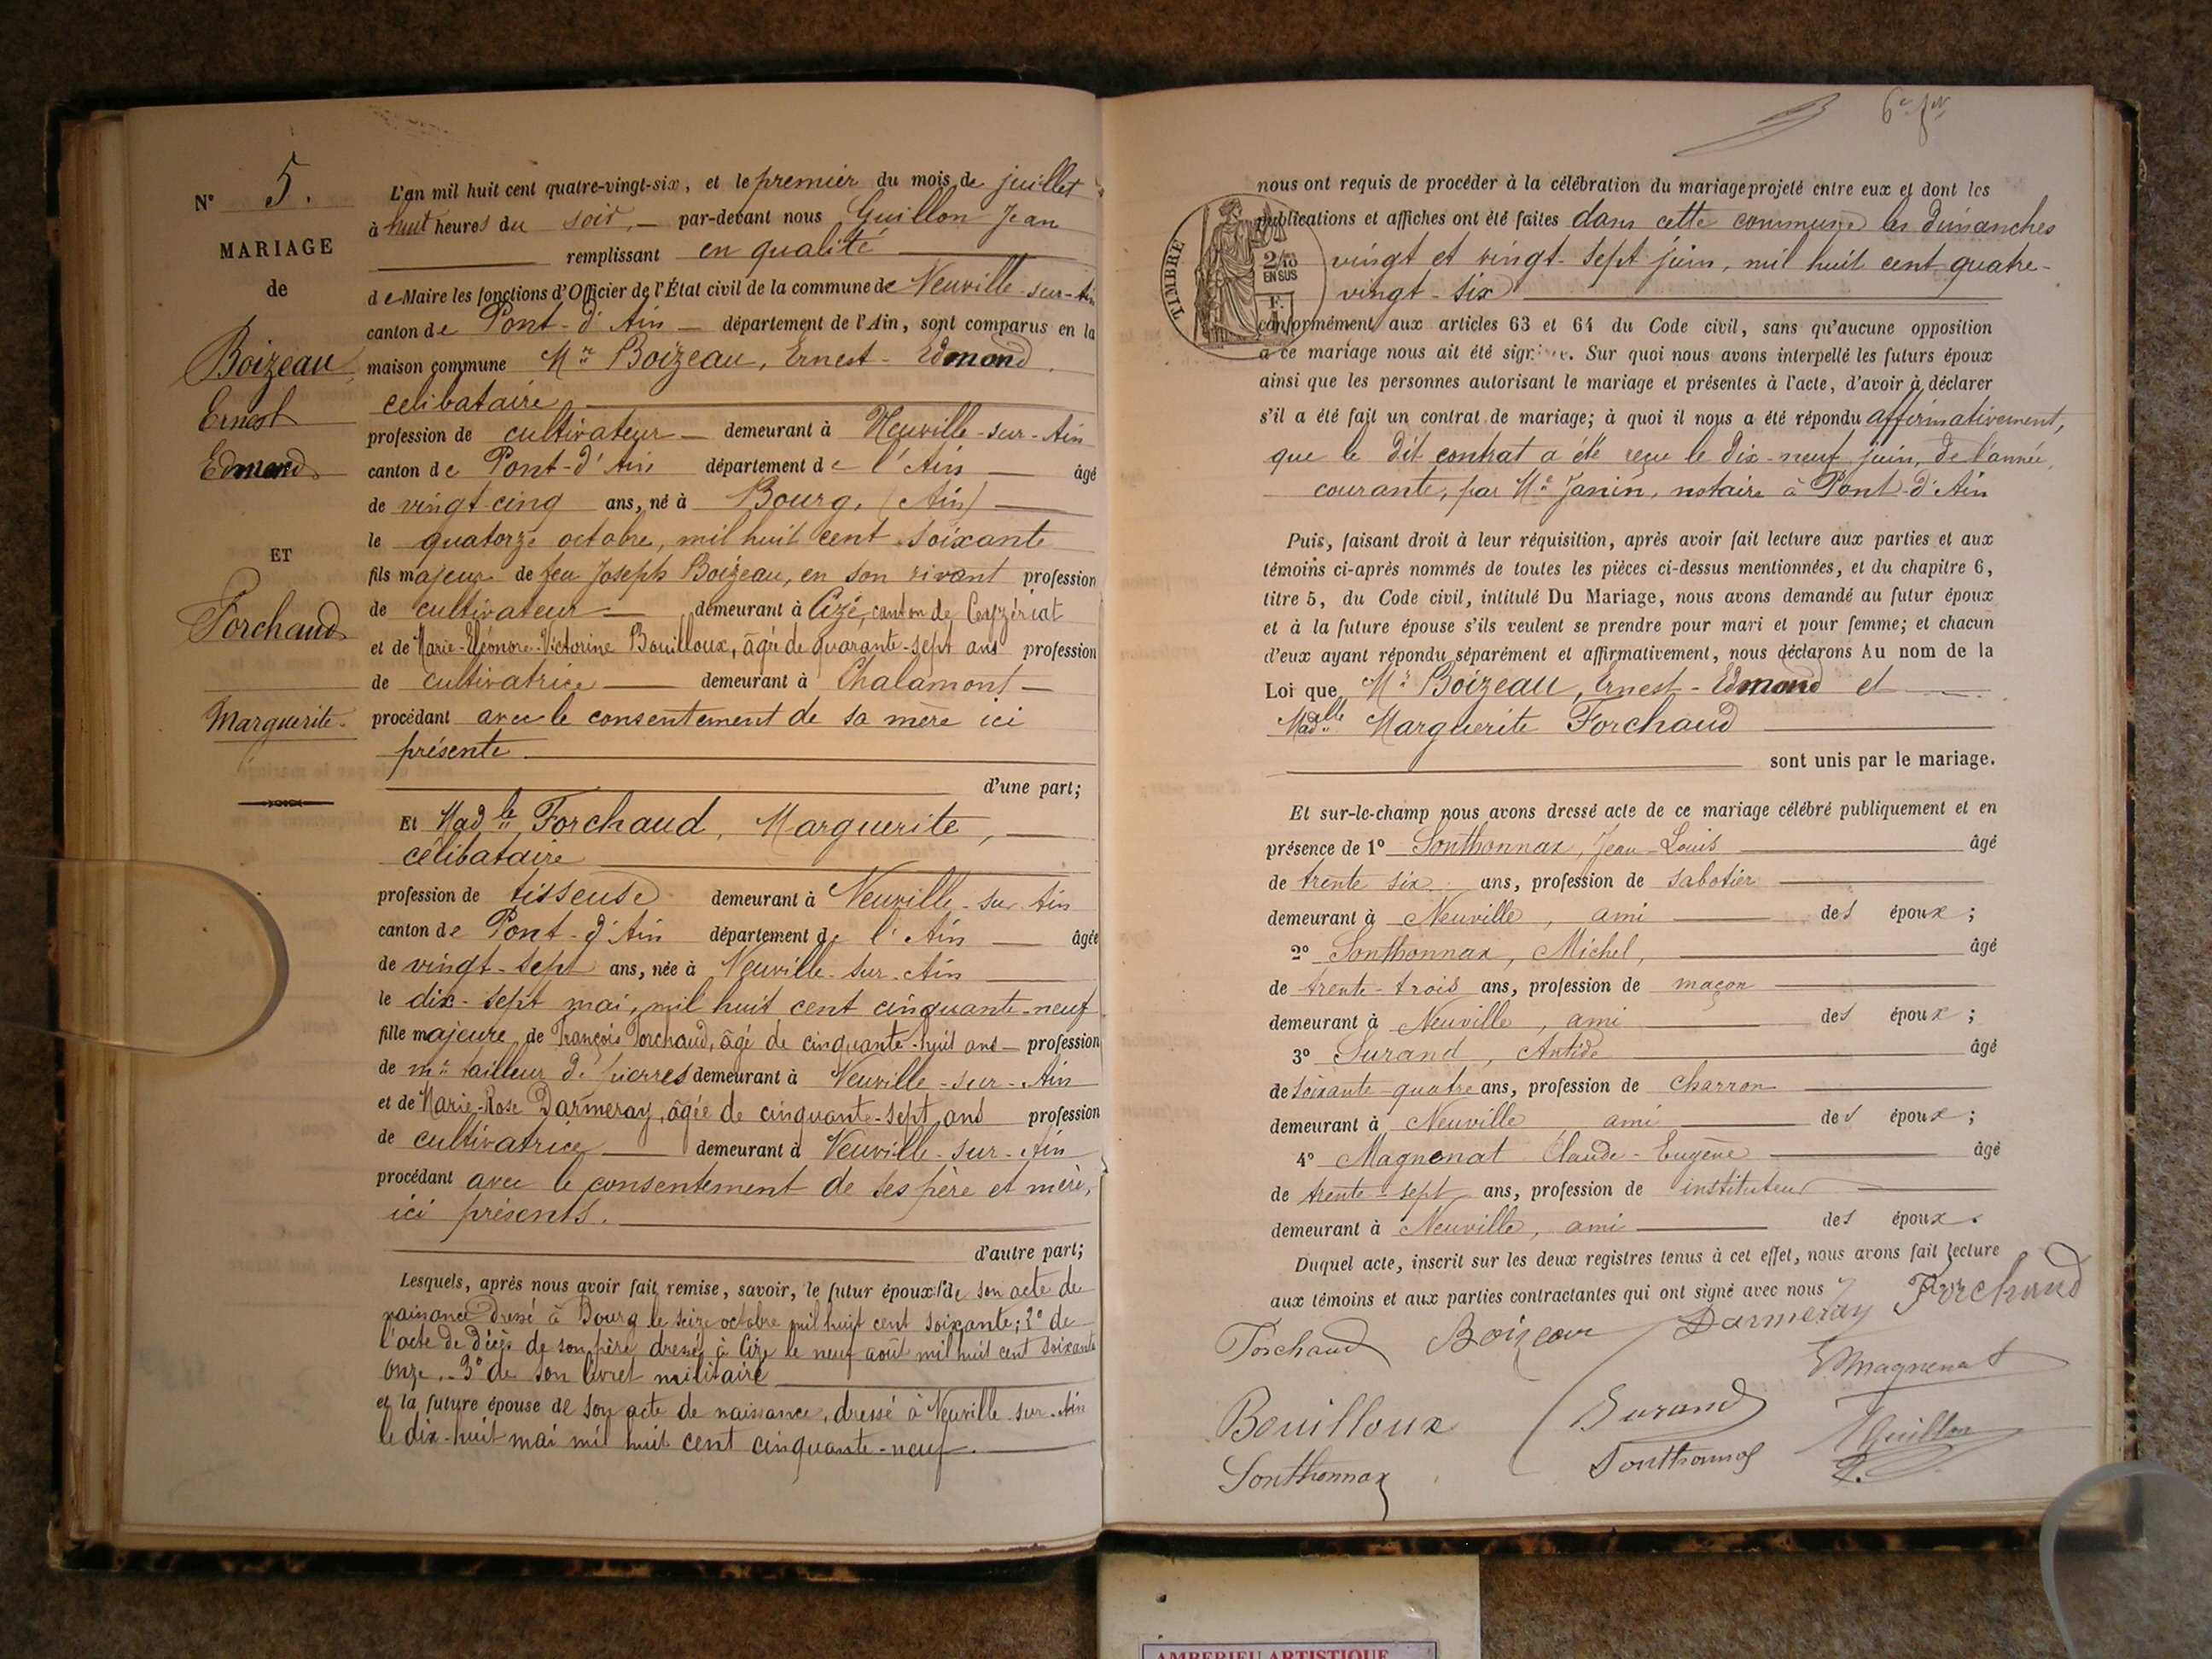 N° 5.
MARIAGE
de
Boizeau
Ernest
Edmond
ET
Forchaud
Marguerite.
L'an mil huit cent quatre-vingt-six, et le premier du mois de juillet
à huit heures du soir, — par-devant nous Guillon Jean
remplissant en qualité
de Maire les fonctions d'Officier de l'État civil de la commune de Neuville-sur-Ain
canton de Pont-d'Ain — département de l'Ain, sont comparus en la
maison commune Mr Boizeau, Ernest-Edmond,
célibataire
profession de cultivateur — demeurant à Neuville-sur-Ain
canton de Pont-d'Ain département de l'Ain — âgé
de vingt-cinq ans, né à Bourg, (Ain) —
le quatorze octobre, mil huit cent soixante
fils majeur de feu Joseph Boizeau, en son vivant profession
de cultivateur — demeurant à Cize, canton de Ceyzériat
et de Marie-Eléonore-Victorine Bouilloux, âgée de quarante-sept ans profession
de cultivatrice — demeurant à Chalamont —
procédant avec le consentement de sa mère ici
présente
d'une part;
Et Madlle Forchaud, Marguerite, —
célibataire
profession de tisseuse demeurant à Neuville-sur-Ain
canton de Pont-d'Ain département de l'Ain — âgée
de vingt-sept ans, née à Neuville-sur-Ain
le dix-sept mai, mil huit cent cinquante-neuf
fille majeure de François Forchaud, âgé de cinquante-huit ans — profession
de me tailleur de pierres demeurant à Neuville-sur-Ain
et de Marie-Rose Darmeray, âgée de cinquante-sept ans profession
de cultivatrice — demeurant à Neuville-sur-Ain
procédant avec le consentement de ses père et mère,
ici présents.
d'autre part;
Lesquels, après nous avoir fait remise, savoir, le futur époux 1° de son acte de
naissance dressé à Bourg le seize octobre mil huit cent soixante; 2° de
l'acte de décès de son père dressé à Cize le neuf août mil huit cent soixante
onze. - 3° de son livret militaire
et la future épouse de son acte de naissance, dressé à Neuville-sur-Ain
le dix-huit mai mil huit cent cinquante-neuf.
nous ont requis de procéder à la célébration du mariage projeté entre eux et dont les
publications et affiches ont été faites dans cette commune les dimanches
vingt et vingt-sept juin, mil huit cent quatre-
vingt-six
TIMBRE
2/10
EN SUS
conformément aux articles 63 et 64 du Code civil, sans qu'aucune opposition
à ce mariage nous ait été signifiée. Sur quoi nous avons interpellé les futurs époux
ainsi que les personnes autorisant le mariage et présentes à l'acte, d'avoir à déclarer
s'il a été fait un contrat de mariage; à quoi il nous a été répondu affirmativement,
que le dit contrat a été reçu le dix-neuf juin, de l'année
courante, par Me Janin, notaire à Pont-d'Ain
Puis, faisant droit à leur réquisition, après avoir fait lecture aux parties et aux
témoins ci-après nommés de toutes les pièces ci-dessus mentionnées, et du chapitre 6,
titre 5, du Code civil, intitulé Du Mariage, nous avons demandé au futur époux
et à la future épouse s'ils veulent se prendre pour mari et pour femme; et chacun
d'eux ayant répondu séparément et affirmativement, nous déclarons Au nom de la
Loi que Mr Boizeau, Ernest-Edmond et
Madlle Marguerite Forchaud
sont unis par le mariage.
Et sur-le-champ nous avons dressé acte de ce mariage célébré publiquement et en
présence de 1° Sonthonnax, Jean-Louis âgé
de trente six ans, profession de sabotier
demeurant à Neuville, ami des époux;
2° Sonthonnax, Michel, âgé
de trente-trois ans, profession de maçon
demeurant à Neuville, ami des époux;
3° Surand, Antide âgé
de soixante-quatre ans, profession de charron
demeurant à Neuville ami des époux;
4° Magnenat Claude-Eugène âgé
de trente-sept ans, profession de instituteur
demeurant à Neuville, ami des époux.
Duquel acte, inscrit sur les deux registres tenus à cet effet, nous avons fait lecture
aux témoins et aux parties contractantes qui ont signé avec nous
Forchaud Boizeau Darmeray Forchaud
E. Magnenat
Bouilloux Surand Guillon
Sonthonnax Sonthonnax
AMBERIEU ARTISTIQUE